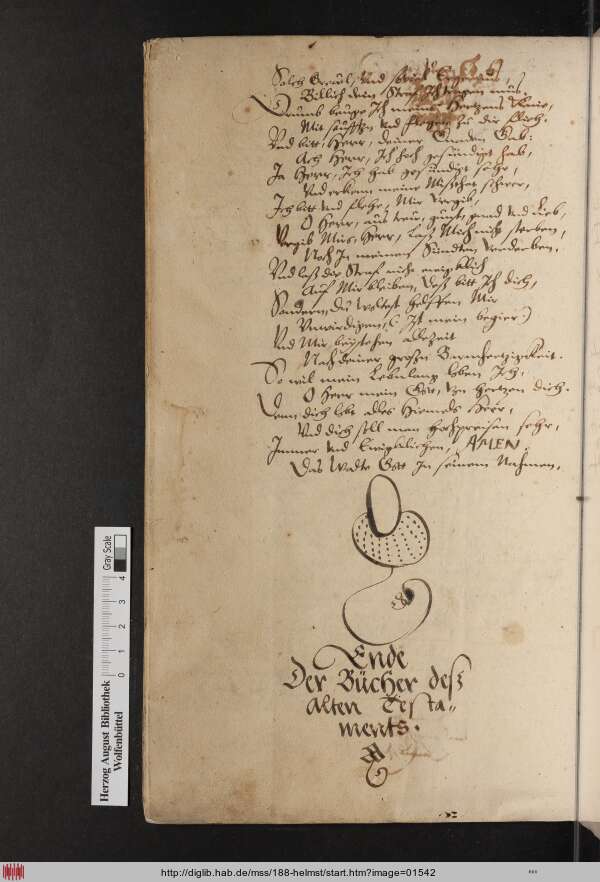 Solch Greuel, Und
Billich dein Straf Ich tragen mus.
Drumb beuge Ich meines Hertzens Knie,
Mit seufftzen Und flegen zu dir
Und bitt, Herr, deiner Gnaden Gab:
Ach Herr, Ich hab gesündigt hab,
Ja Herr, Ich hab gesündigt sehr,
Und erkenn meine Missethat schwer,
Ich bitt Und flehe, Mir Vergib,
O Herr, aus trew, gunst, gnad Und Lieb,
Vergib Mirs, Herr, Laß Mich nicht sterben,
Noch In meinen Sünden Verderben.
Und laß die Straf nicht ewigklich
Auf Mir bleiben, deß bitt Ich dich,
Sondern, du wollest helffen Mir
Unwirdigen, (Ist mein begier:)
Und Mir beystehen allezeit
Nach deiner großen Barmhertzigkeit.
So wil mein Lebenlang loben Ich,
O Herr mein Gott, Von hertzen dich.
Denn dich lobt alles Himels Heer,
Und dich soll man hochpreisen sehr,
Immer Und Ewigklichen, AMEN.
Das Walte Gott In seinem Nahmen.
Ende
Der Bücher deß
Alten Testa=
ments.
Herzog August Bibliothek
Wolfenbüttel
Gray Scale
0 1 2 3 4
http://diglib.hab.de/mss/188-helmst/start.htm?image=01542